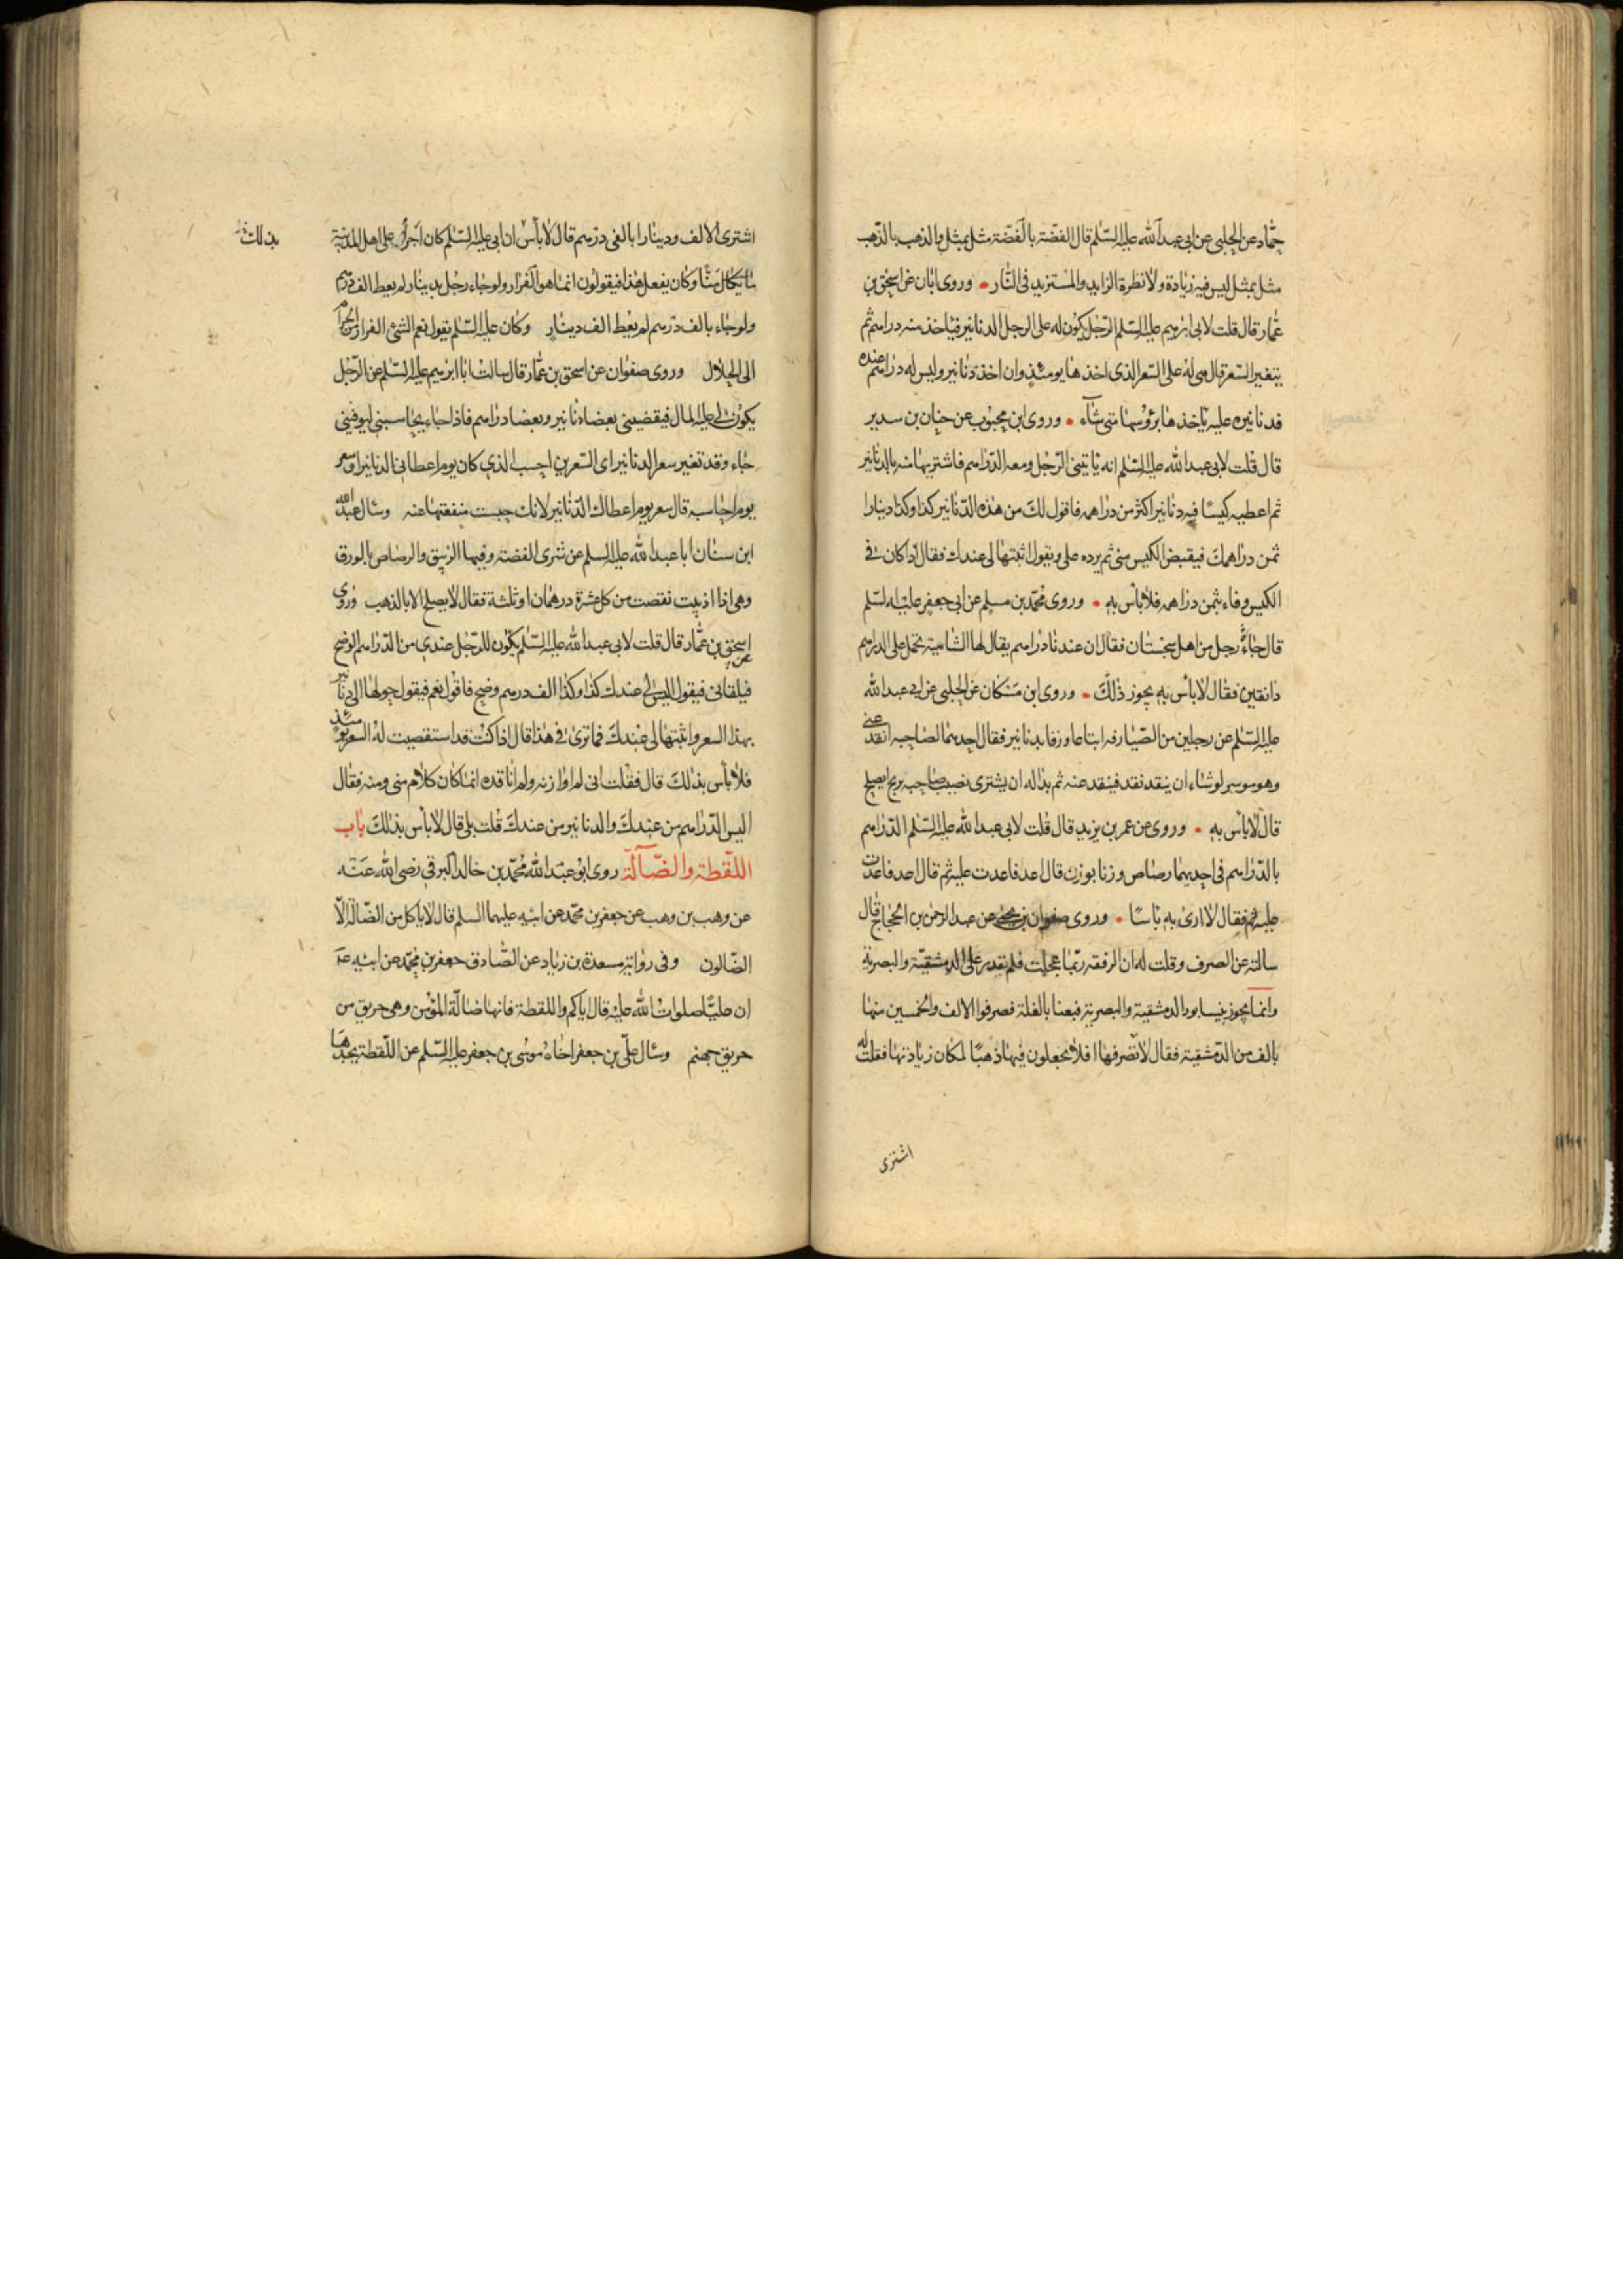 حماد عن الحلبی عن ابی عبدالله علیه السلم قال الفضة بالفضة مثل بمثل والذهب بالذهب
مثل بمثل لیس فیه زیادة ولا نظرة الزاید والمستزید فی النار • وروی ابان عن اسحق بن
عمار قال قلت لابی ابرهیم علیه السلم الرجل یکون له علی الرجل الدنانیر فیاخذ منه دراهم ثم
یتغیر السعر قال هی له علی السعر الذی اخذها یومئذ وان اخذ دنانیر ولیس له دراهم عنده
فدنانیره علیه یاخذها برؤسها متی شآء • وروی ابن محبوب عن حنان بن سدیر
قال قلت لابی عبدالله علیه السلم انه یاتینی الرجل ومعه الدراهم فاشتریها منه بالدنانیر
ثم اعطیه کیسا فیه دنانیر اکثر من دراهمه فاقول لک من هذه الدنانیر کذا وکذا دینارا
ثمن دراهمک فیقبض الکیس منی ثم یرده علی ویقول اثبتها لی عندک فقال اذا کان فی
الکیس وفاء بثمن دراهمه فلا بأس به • وروی محمد بن مسلم عن ابی جعفر علیه السلم
قال جاءه رجل من اهل سجستان فقال ان عندنا دراهم یقال لها الشامیة تحمل علی الدراهم
دانقین فقال لا بأس به یجوز ذلک • وروی ابن مسکان عن الحلبی عن ابی عبدالله
علیه السلم عن رجلین من الصیارفه ابتاعا ورقا بدنانیر فقال احدهما لصاحبه انقد عنی
وهو موسر لو شاء ان ینقد نقد فینقد عنه ثم بدا له ان یشتری نصیب صاحبه بربح ایصلح
قال لا بأس به • وروی عن عمر بن یزید قال قلت لابی عبدالله علیه السلم الدراهم
بالدراهم فی احدیهما رصاص وزنا بوزن قال اعد فاعدت علیه ثم قال اعد فاعدت
علیه فقال لا اری به باسا • وروی صفوان بن یحیی عن عبدالرحمن بن الحجاج قال
سالته عن الصرف وقلت له ان الرفقه ربما عجلت فلم نقدر علی الدمشقیة والبصریة
وانما یجوز نیسابور الدمشقیة والبصریة فبعنا بالغلة فصرفوا الالف والخمسین منها
بالف من الدمشقیة فقال لا تصرفها افلا تجعلون فیها ذهبا لمکان زیادتها فقلت له
اشتری
اشتری الالف ودینارا بالفی درهم قال لا بأس ان ابی علیه السلم کان اجرأ علی اهل المدینة
منا وکان یفعل هذا فیقولون انما هو الفرار ولو جاء رجل بدینار لم یعط الف درهم
ولو جاء بالف درهم لم یعط الف دینار وکان علیه السلم یقول نعم الشئ الفرار من الحرام
الی الحلال وروی صفوان عن اسحق بن عمار قال سالت ابا ابرهیم علیه السلم عن الرجل
یکون لی علیه المال فیقضینی بعضا دنانیر وبعضا دراهم فاذا جاء یحاسبنی لیوفینی
جاء وقد تغیر سعر الدنانیر ای السعرین احسب الذی کان یوم اعطانی الدنانیر او سعر
یوم احاسبه قال سعر یوم اعطاک الدنانیر لانک حبست منفعتها عنه وسال عبدالله
ابن سنان ابا عبدالله علیه السلم عن شری الفضة وفیها الزیبق والرصاص بالورق
وهی اذا اذیبت نقصت من کل عشرة درهمان او ثلثة فقال لا یصلح الا بالذهب وروی
اسحق بن عمار قال قلت لابی عبدالله علیه السلم یکون للرجل عندی من الدراهم الوضح
فیلقانی فیقول الیس لی عندک کذا وکذا الف درهم وضح فاقول نعم فیقول حولها الی دنانیر
بهذا السعر واثبتها لی عندک فما تری فی هذا قال اذا کنت قد استقصیت له السعر یومئذ
فلا بأس بذلک قال فقلت انی لم اوازنه ولم اناقده انما کان کلام منی ومنه فقال
الیس الدراهم من عندک والدنانیر من عندک قلت بلی قال لا بأس بذلک باب
اللقطة والضآلة روی ابو عبدالله محمد بن خالد البرقی رضی الله عنه
عن وهب بن وهب عن جعفر بن محمد عن ابیه علیهما السلم قال لا یاکل من الضالة الا
الضالون وفی روایة مسعدة بن زیاد عن الصادق جعفر بن محمد عن ابیه ع
ان علیا صلوات الله علیه قال ایاکم واللقطة فانها ضالة المؤمن وهی حریق من
حریق جهنم وسال علی بن جعفر اخاه موسی بن جعفر علیه السلم عن اللقطة یجدها